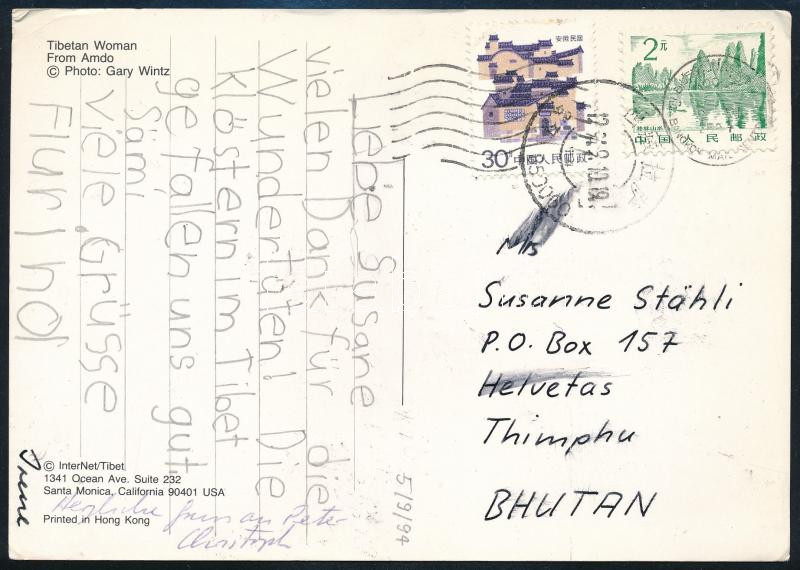 Tibetan Woman
From Amdo
© Photo: Gary Wintz
Liebe Susane
vielen Dank für die
Wundertüten! Die
Klöstern im Tibet
gefallen uns gut.
Sämi
Viele Grüsse
Flurina
Irene
Herzliche Gruss an Peter
Christoph
© InterNet/Tibet
1341 Ocean Ave. Suite 232
Santa Monica, California 90401 USA
Printed in Hong Kong
5/9/94
安徽民居
30分 中国人民邮政
2元
桂林山水
中国人民邮政
Mrs
Susanne Stähli
P.O. Box 157
Helvetas
Thimphu
BHUTAN